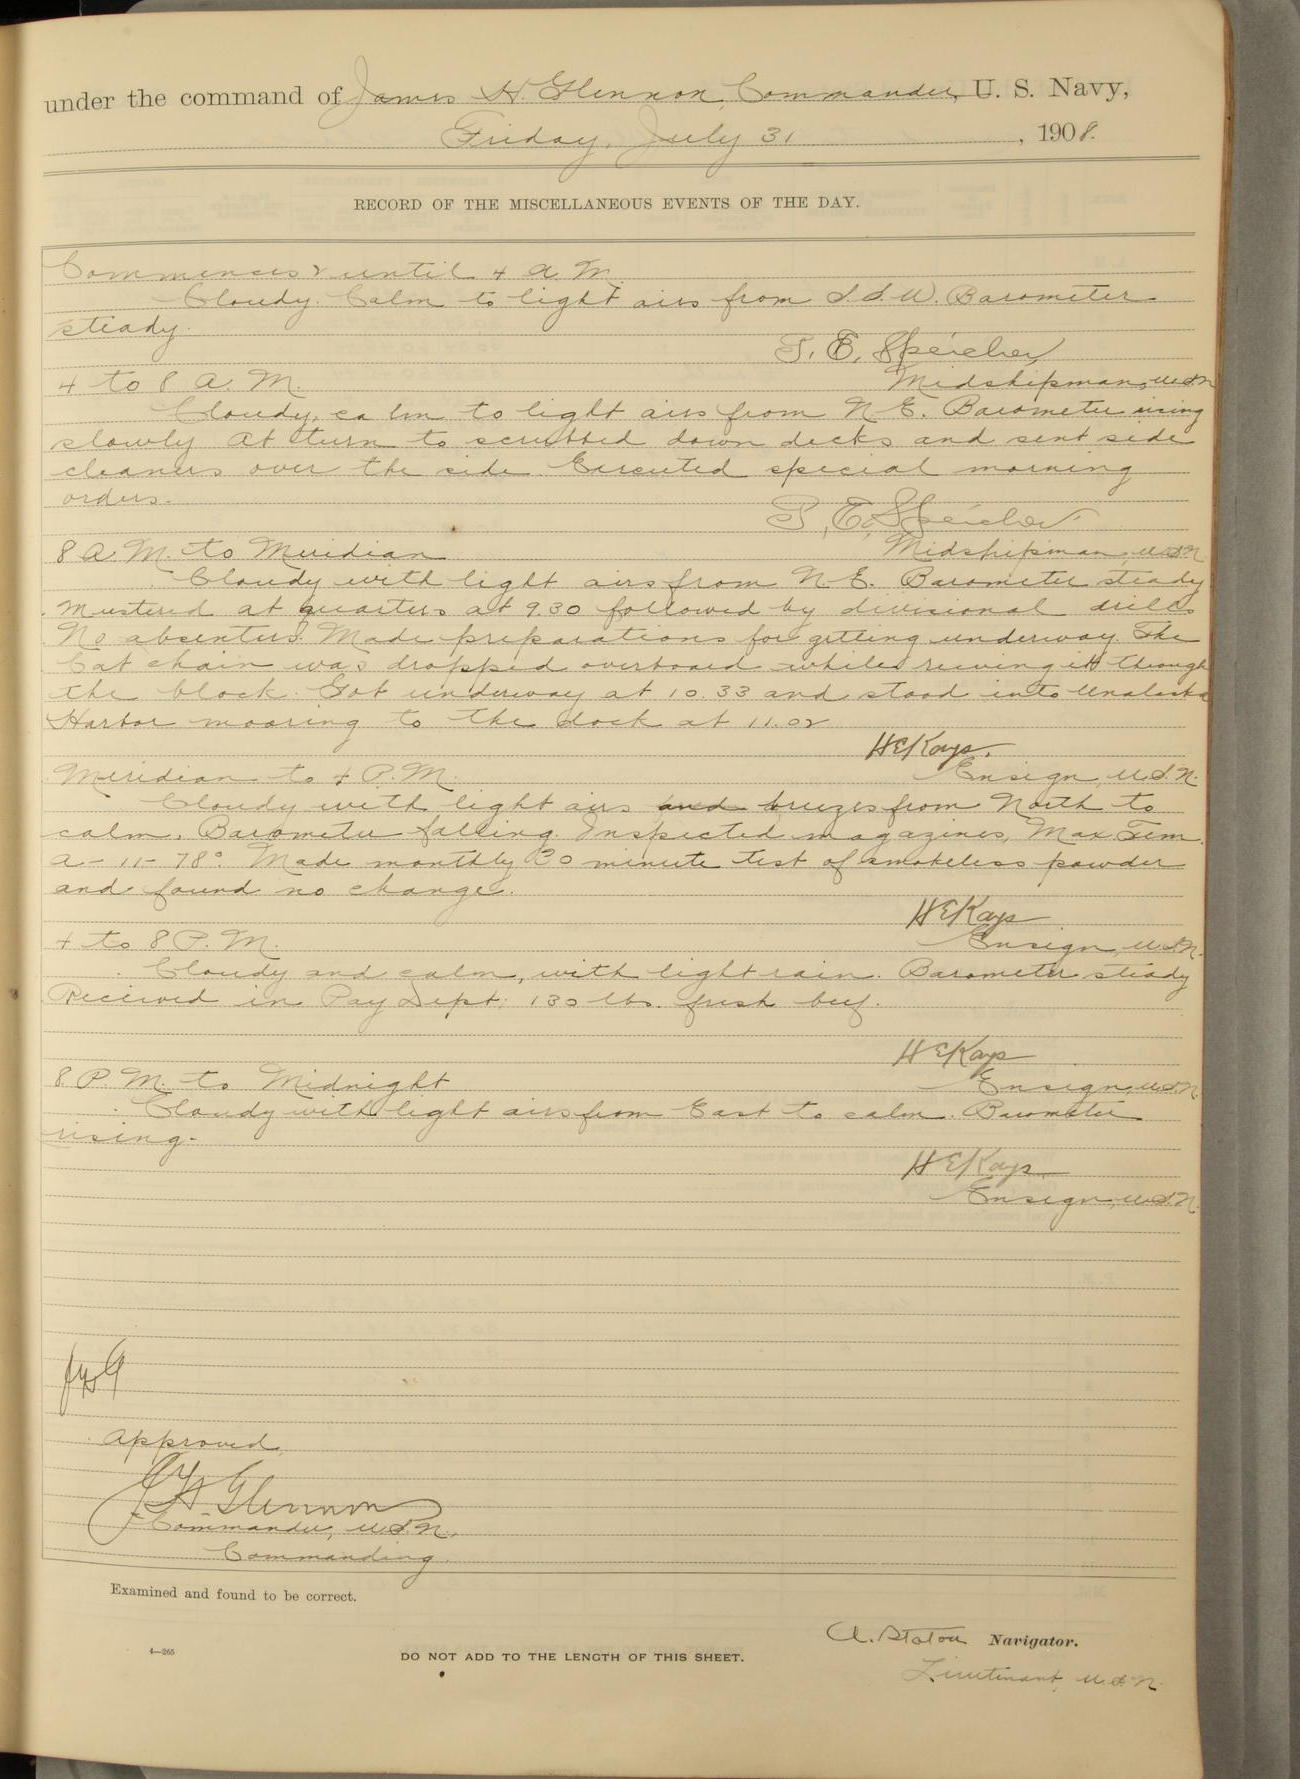 under the command of James H. Glennon, Commander, U. S. Navy,
Friday, July 31, 1908.
RECORD OF THE MISCELLANEOUS EVENTS OF THE DAY.
Commences & until 4 A. M.
Cloudy. Calm to light airs from S. S. W. Barometer
steady.
P. E. Speicher,
4 to 8 A. M.
Midshipman, U.S.N.
Cloudy, calm to light airs from N. E. Barometer rising
slowly At turn to scrubbed down decks and sent side
cleaners over the side Executed special morning
orders.
P. E. Speicher
8 A. M. to Meridian
Midshipman, U.S.N.
Cloudy with light airs from N. E. Barometer steady
Mustered at quarters at 9.30 followed by divisional drills
No absentees. Made preparations for getting underway. The
Cat chain was dropped overboard while reeving it through
the block. Got underway at 10.33 and stood into Unalaska
Harbor mooring to the dock at 11.02
H E Kays,
Meridian to 4 P. M.
Ensign, U.S.N.
Cloudy with light airs and breezes from North to
calm. Barometer falling. Inspected magazines, Max. Tem.
A-11-78° Made monthly 30 minute test of smokeless powder
and found no change.
H E Kays
4 to 8 P. M.
Ensign, U.S.N.
Cloudy and calm, with light rain. Barometer steady
Received in Pay Dept; 130 lbs. fresh beef.
H E Kays
8 P. M. to Midnight
Ensign, U.S.N.
Cloudy with light airs from East to calm. Barometer
rising.
H E Kays
Ensign, U.S.N.
JHG
Approved,
J H Glennon
Commander, U.S.N.,
Commanding.
Examined and found to be correct.
A. Staton Navigator.
4—265
DO NOT ADD TO THE LENGTH OF THIS SHEET.
Lieutenant, U.S.N.